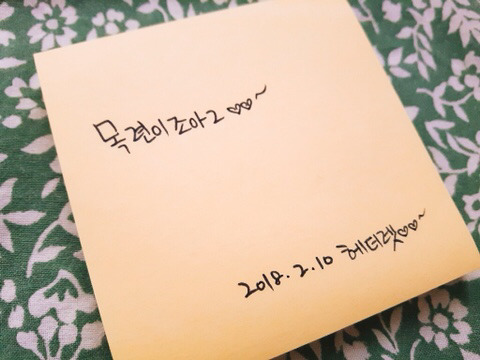 목련이조아2♡♡~
2018.2.10 헤더렛♡♡~